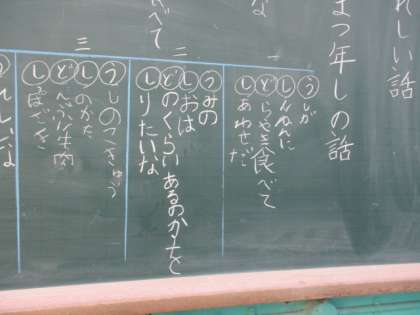 れしい話
まつ年しの話
な
一
うしが
しんねんに
どらやき食べて
しあわせだ
べて
二
うみの
しおは
どのくらいあるのか
しりたいな
三
うしのこきゅう
しのかた
どんぶり牛肉
れしいな